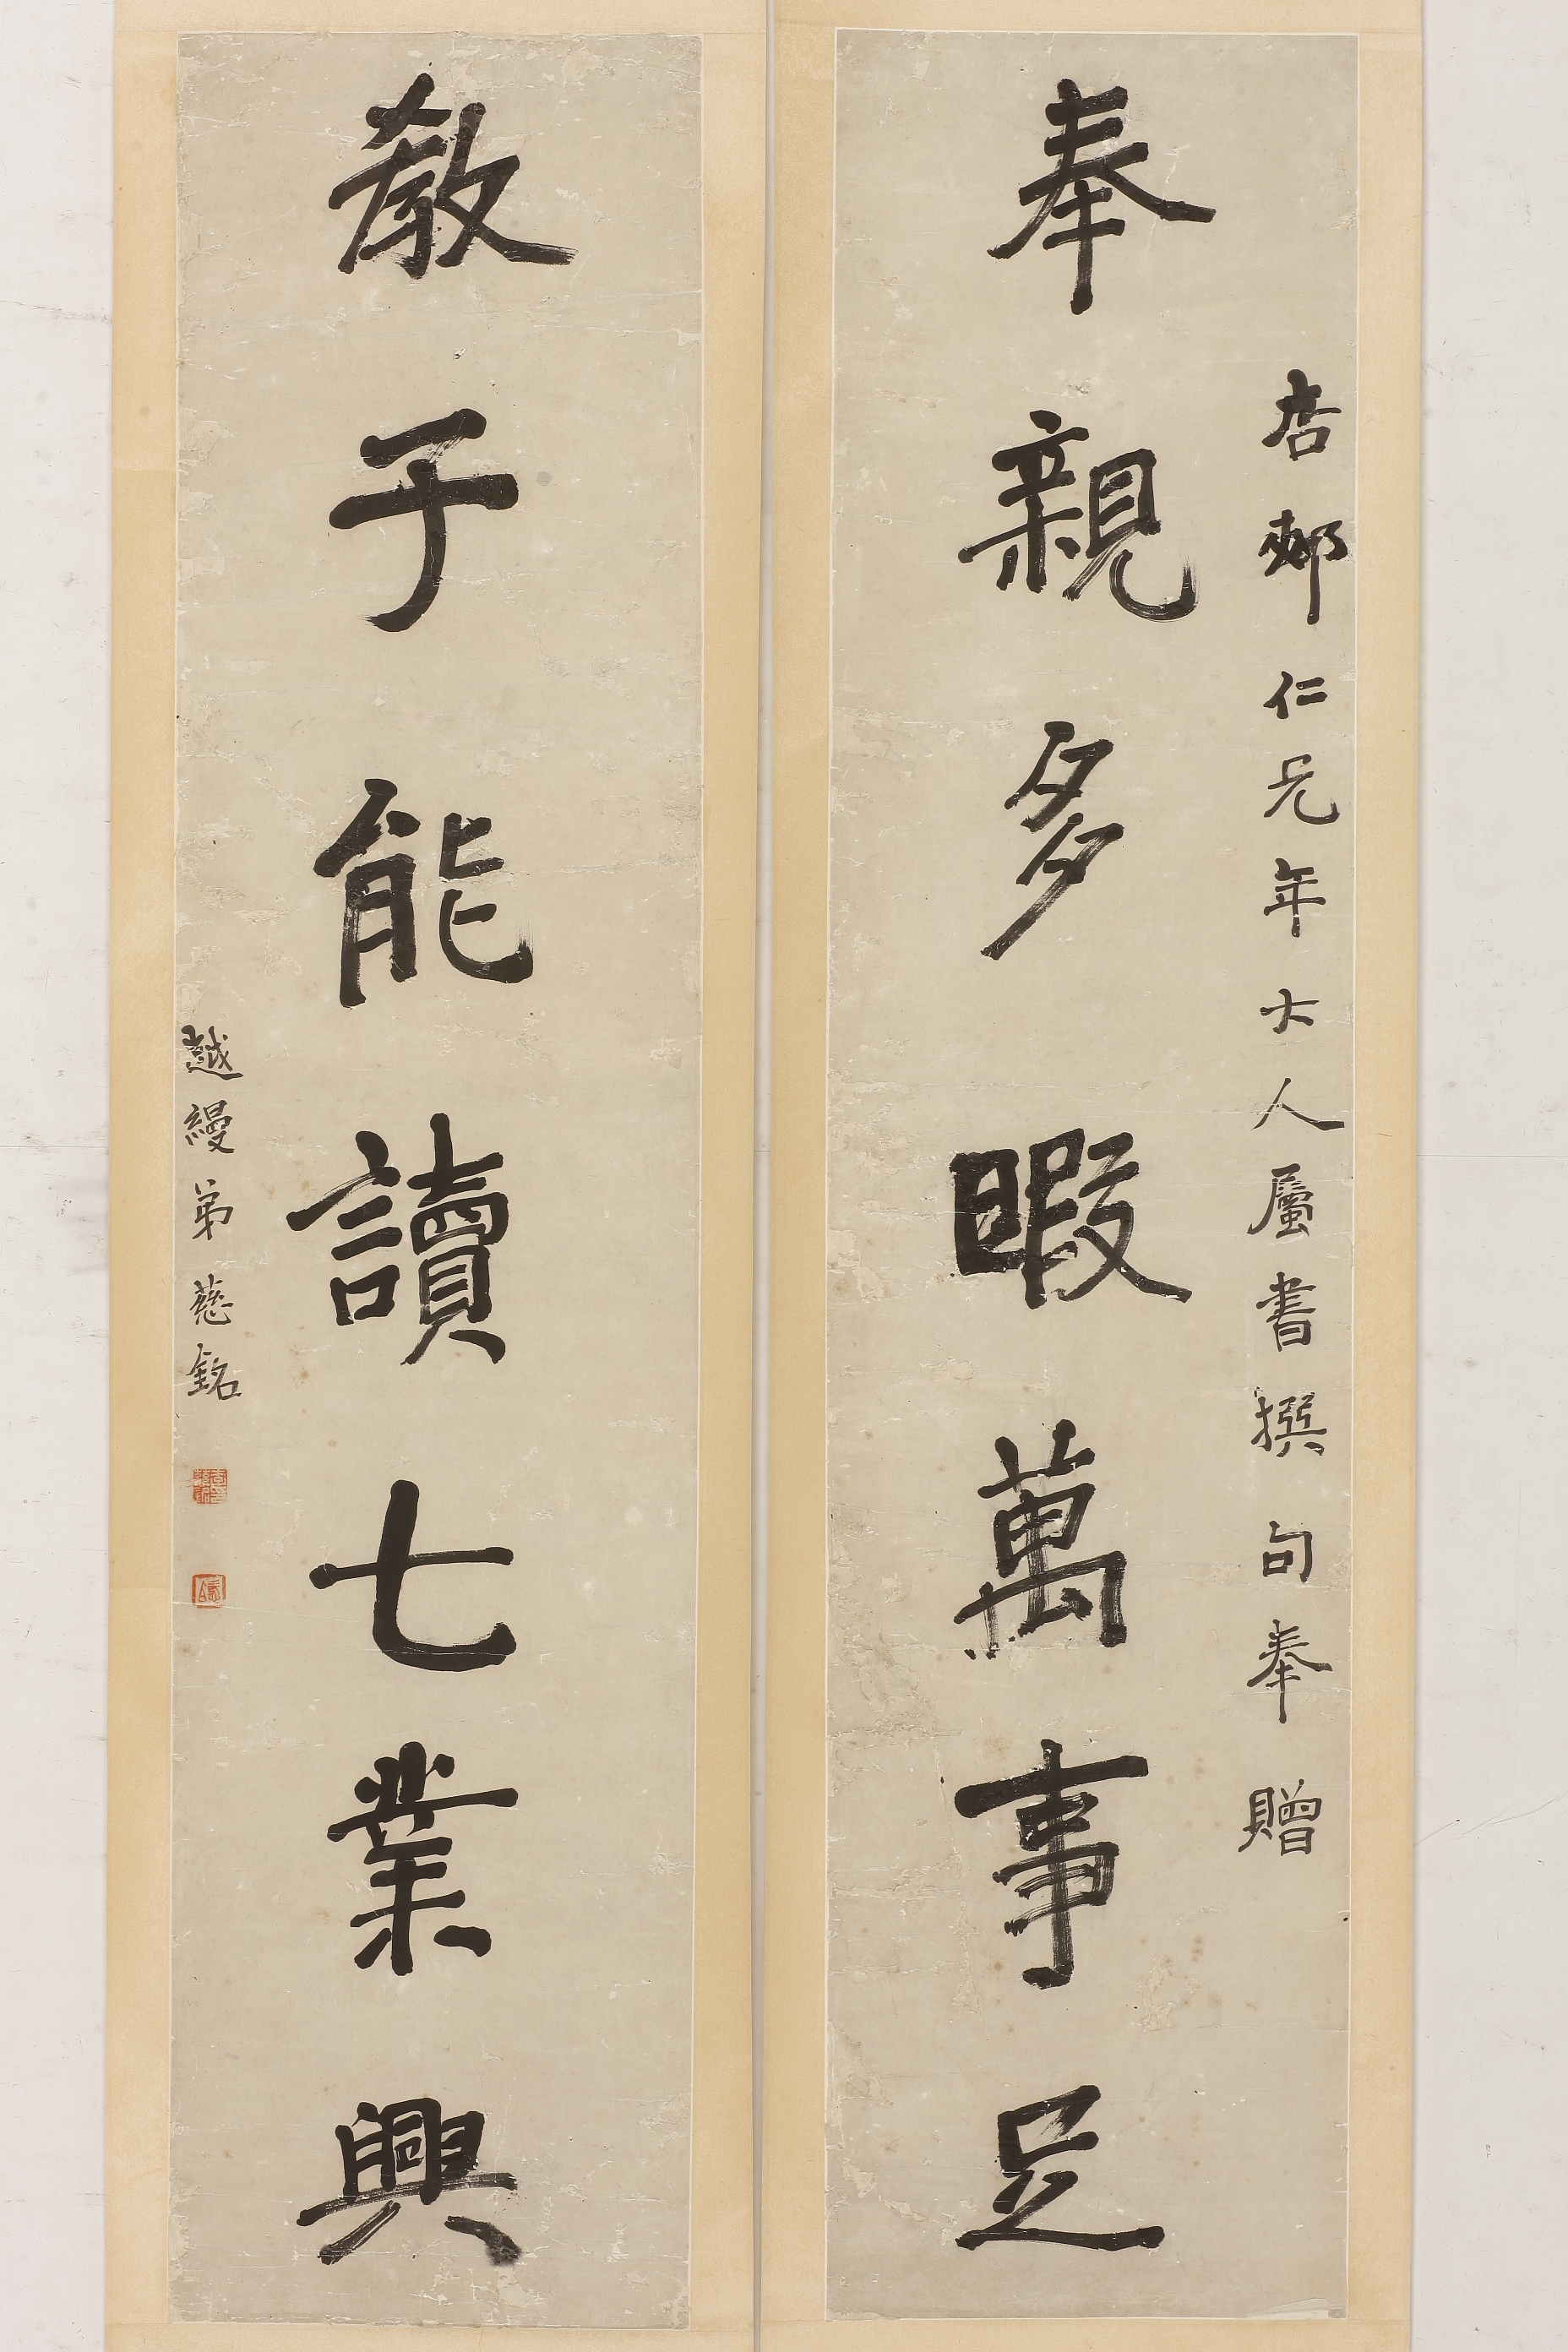 杏邨仁兄年大人屬書撰句奉贈
奉親多暇萬事足
教子能讀七業興
越縵弟慈銘